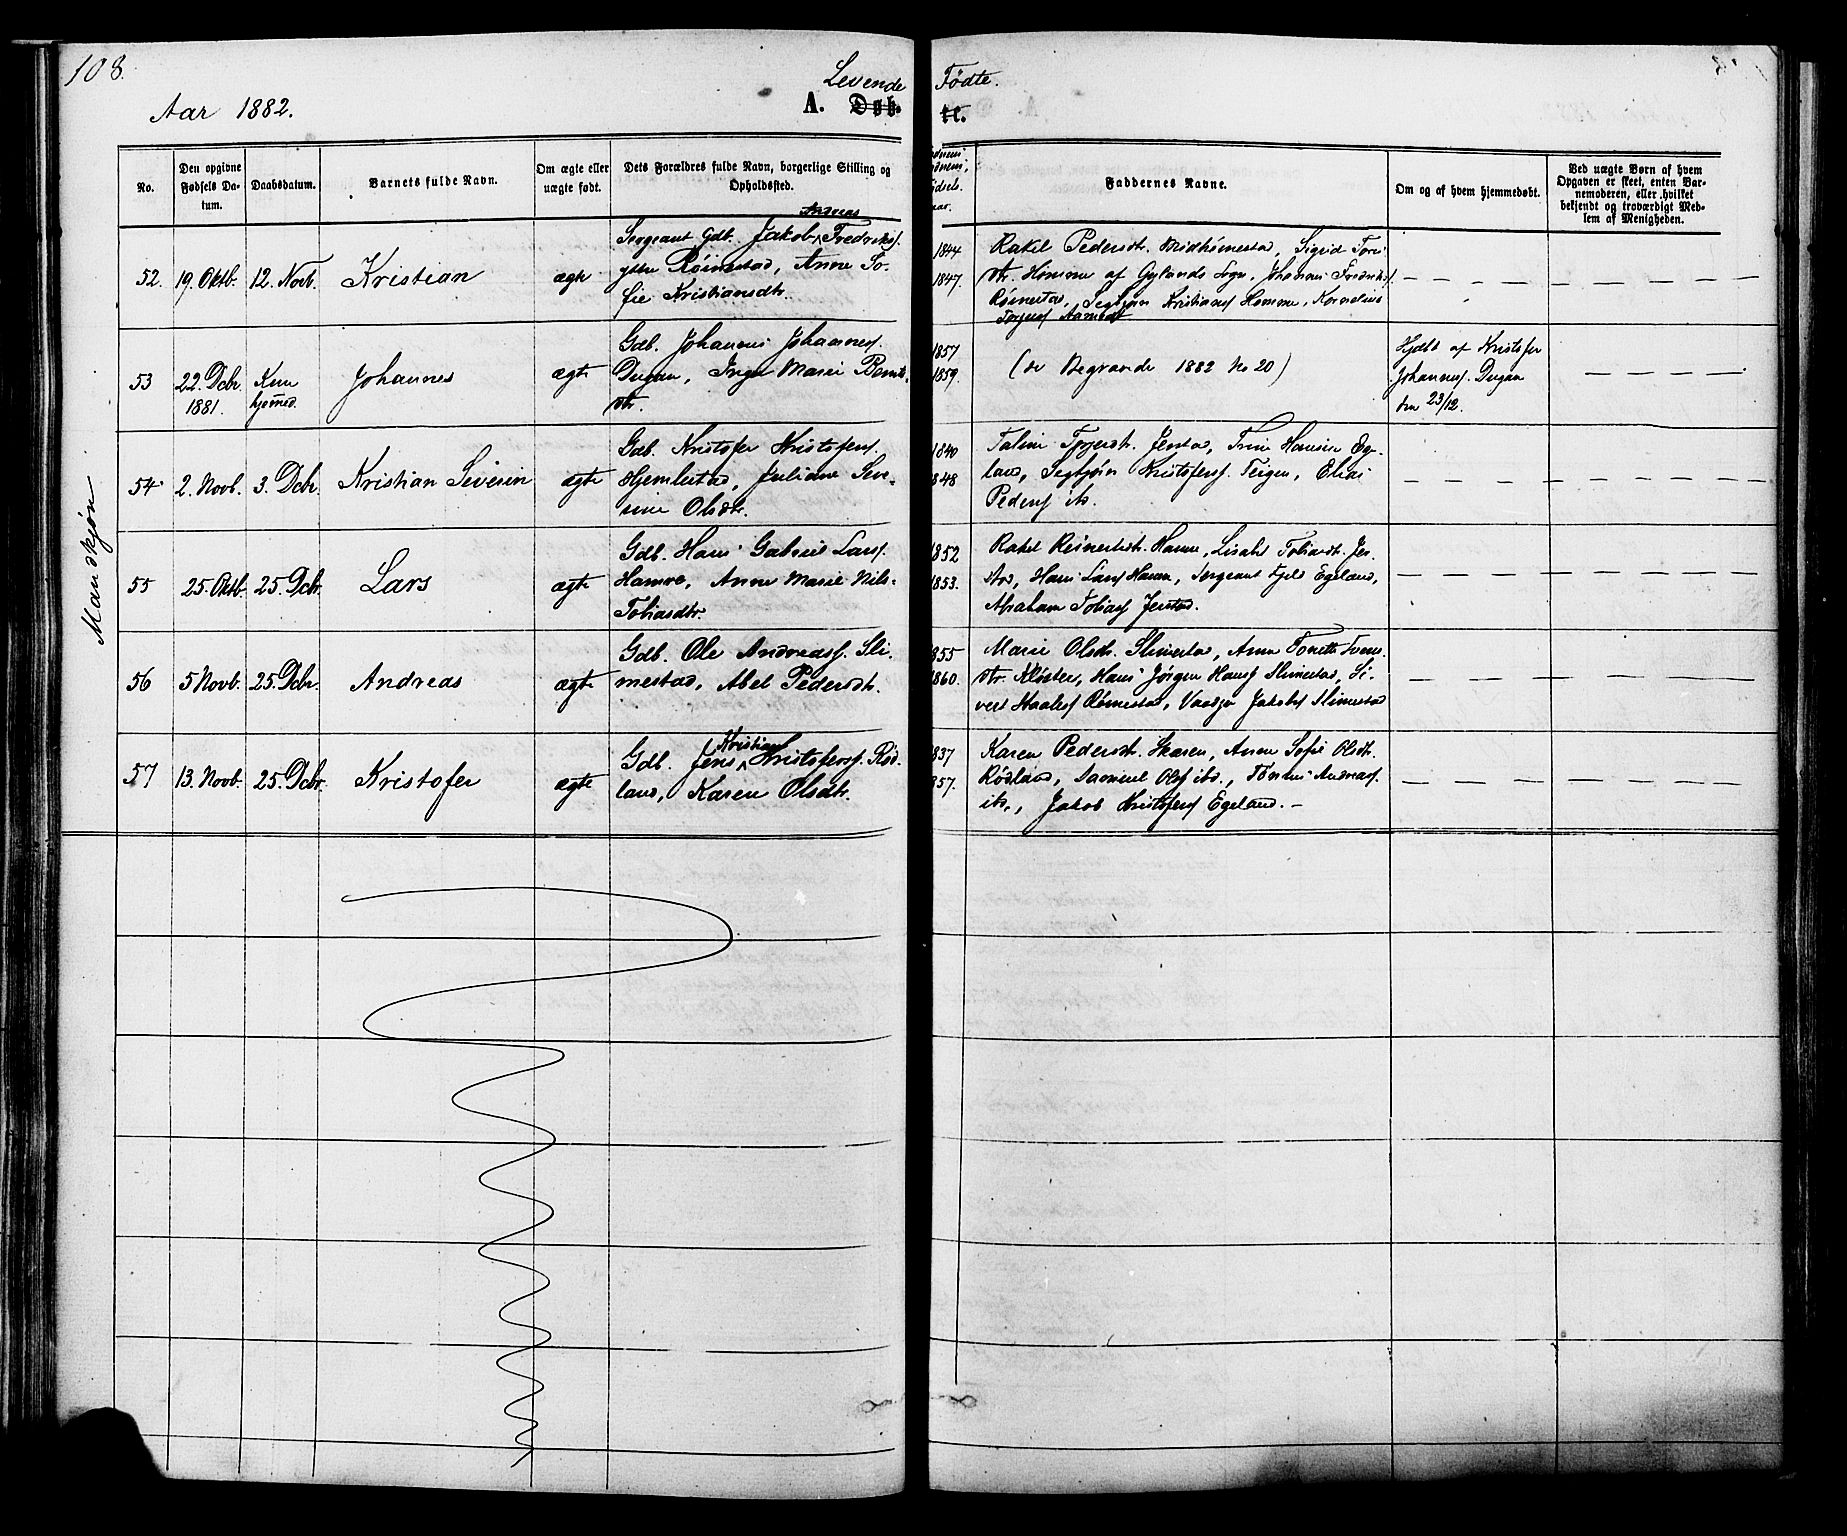 108.
Aar 1882.
Levende Fødte.
A. Døb- te.
No.
Den opgivne Fødsels Da-tum.
Daabsdatum.
Barnets fulde Navn.
Om ægte eller uægte født.
Dets Forældres fulde Navn, borgerlige Stilling og Opholdssted.
Faddernes Navne.
Om og af hvem hjemmedøbt.
Ved uægte Børn af hvem Opgaven er skeet, enten Bar-nemoderen, eller hvilket bekjendt og troværdigt Med-lem af Menigheden.
Mandskjøn
52. 19. Oktb. 12. Novb. Kristian ægte
Sergeant Gdb. Jakob Andreas Fredriks.
ytre Røimestad, Anne So-
fie Kristiansdtr.
1844
1847.
Rakel Pedersdt. Midhømestad, Sigrid Tore
dtr. Homme af Gylands Sogn, Johannes Fredriks.
Rømestad, Segbjørn Kristians. Homme, Kornelius
Torjers. Aamodt
53 22. Dcbr. 1881. Kun hjemmed. Johannes ægte
Gdb. Johannes Johannes.
Dugan, Inger Marie Bernts-
dtr.
1857
1859.
(se Begravede 1882 No 20)
Hjdbt af Kristofer
Johannes. Dugan
den 23/12.
54. 2. Novb. 3. Dcbr. Kristian Severin ægte
Gdb. Kristofer Kristofers.
Hjemlestad, Juliane Seve-
rine Olsdtr.
1840
1848
Taline Torjersdt. Jerstad, Trine Hansen Eg-
land, Segbjørn Kristofers. Teigen, Elias
Peders. ibd.
55 25. Oktb. 25. Dcbr. Lars ægte
Gdb. Hans Gabriel Lars.
Hamre, Anne Marie Nils-
Tobiasdtr.
1852
1853.
Rakel Reinertsdt. Hamre, Lisabet Tobiasdt. Jer-
stad, Hans Lars. Hamre, Sergeant Fjeld Egeland,
Abraham Tobias. Jerstad.
56 5 Novb. 25. Dcbr. Andreas ægte
Gdb. Ole Andreas. Sli-
mestad, Abel Pedersdt.
855
860.
Marie Olsdt. Slimestad, Anne Tonette
dtr. Kloster, Hans Jørgen Hans. Slimestad, Si-
vert Rømestad, Jakobs. Slimestad
57 13. Novb. 25. Dcbr. Kristofer ægte
Gdb. Jens Kristian Kristofers. Rød-
land, Karen Olsdtr.
837
857.
Karen Pedersdt. Skaren, Anne Sofie Olsdt.
Rødland, Samuel Ols. ibd., Tønnes Andreas.
ibd., Jakob Kristofers. Egeland. –